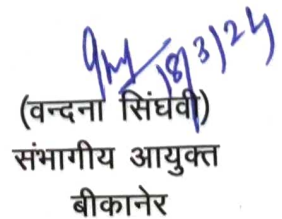 18/3/24
(वन्दना सिंघवी)
संभागीय आयुक्त
बीकानेर